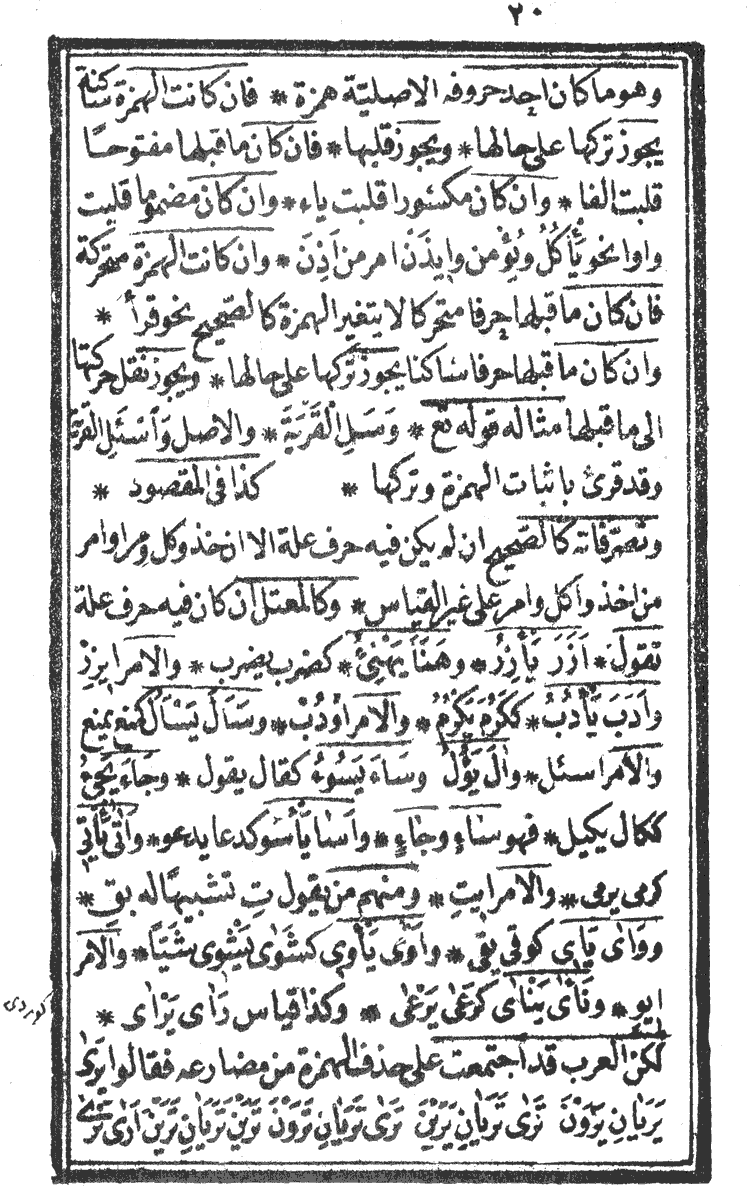 ٢٠
وهو ما كان احد حروفه الاصليّة همزة * فان كانت الهمزة ساكنة
يجوز تركها على حالها * ويجوز قلبها * فان كان ما قبلها مفتوحًا
قلبت الفا * وان كان مكسورا قلبت ياء * وان كان مضموما قلبت
واوا نحو يَأْكُلُ ويُؤْمن وايذَنْ امر من اَذِنَ * وان كانت الهمزة متحركة
فان كان ما قبلها حرفا متحركا لا يتغير الهمزة كالصّحيح نحو قرأ *
وان كان ما قبلها حرفا ساكنا يجوز تركها على حالها * ويجوز نقل حركتها
الى ما قبلها مثاله قوله تع وَسَلِ الْقَرْيَةَ * والاصل وَاسْئَلِ القرية
وقد قرئ باثبات الهمزة وتركها * كذا فى المقصود *
وتصرّفاته كالصّحيح ان لم يكن فيه حرف علة الا ان خذ وكل ومر اوامر
من اخذ واكل وامر على غير القياس * وكالمعتل ان كان فيه حرف علة
تقول * اَزَرَ يَأْزِرُ * وهَنَأَ يَهْنِئُ * كضرب يضرب * والامر ايزِرْ
واَدَبَ يَأْدُبُ * ككَرُمَ يَكْرُمُ * والامر اُودُبْ * وسَاَلَ يَسْاَلُ كمنع يمنع
والامر اسئل * واٰلَ يَؤُلُ وسَاءَ يَسُوءُ كقال يقول * وجَاءَ يَجِئُ
ككال يكيل * فهو سَاءٍ وجَاءٍ * واَسَا يَأْسُو كدعا يدعو * واَتَى يَأْتِى
كرمى يرمى * والامر ايتِ * ومنهم من يقول تِ تشبيهًا له بقِ *
ووَاٰى يَاِى كوقى يقى * واَوَى يَأْوِى كشَوَى يَشْوِى شَيًّا * والامر
ايوِ * ونَاٰى يَنْاٰى كرَعَى يَرْعَى * وكذا قياس رَاٰى يَرْاٰى *
لكن العرب قد اجتمعت على حذف الهمزة من مضارعه فقالوا يَرٰى
يَرَيَانِ يَرَوْنَ تَرٰى تَرَيَانِ يَرَيْنَ تَرٰى تَرَيَانِ تَرَوْنَ تَرَيْنَ تَرَيَانِ تَرَيْنَ اَرٰى نَرٰى